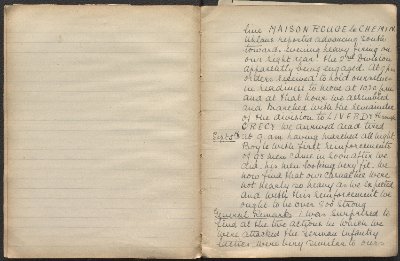 line MAISON ROUGE to CHEMIN.
Uhlans reported advancing South
towards. Evening heavy firing on
our right rear. The 2nd Division
apparently being engaged. At 5 pm
orders received to hold ourselves
in readiness to move at 10.30 pm
and at that hour we assembled
and marched with the remainder
of the division to LIVERDY through
CRECY we arrived dead tired
Sept 5th at 9 am having marched all night.
Boyle with first reinforcements
of 95 men came in soon after we
did. his men looking very fit. We
now find that our casualties were
not nearly so heavy as we expected
and with this reinforcement we
ought to be over 900 strong
General Remarks I was surprised to
find at the two actions in which we
were attacked the German infantry
tactics were very similar to ours